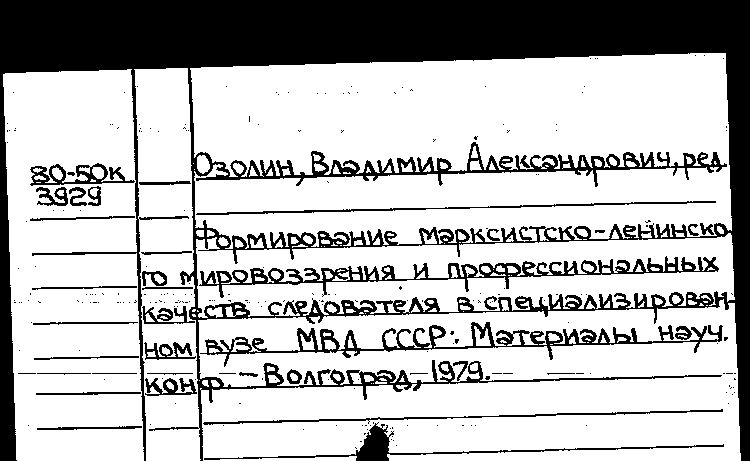 80-50к
3929
Озолин, Владимир Александрович, ред.
Формирование марксистско-ленинско-
го мировоззрения и профессиональных
качеств следователя в специализирован-
ном вузе МВД СССР: Материалы науч.
конф. – Волгоград, 1979.